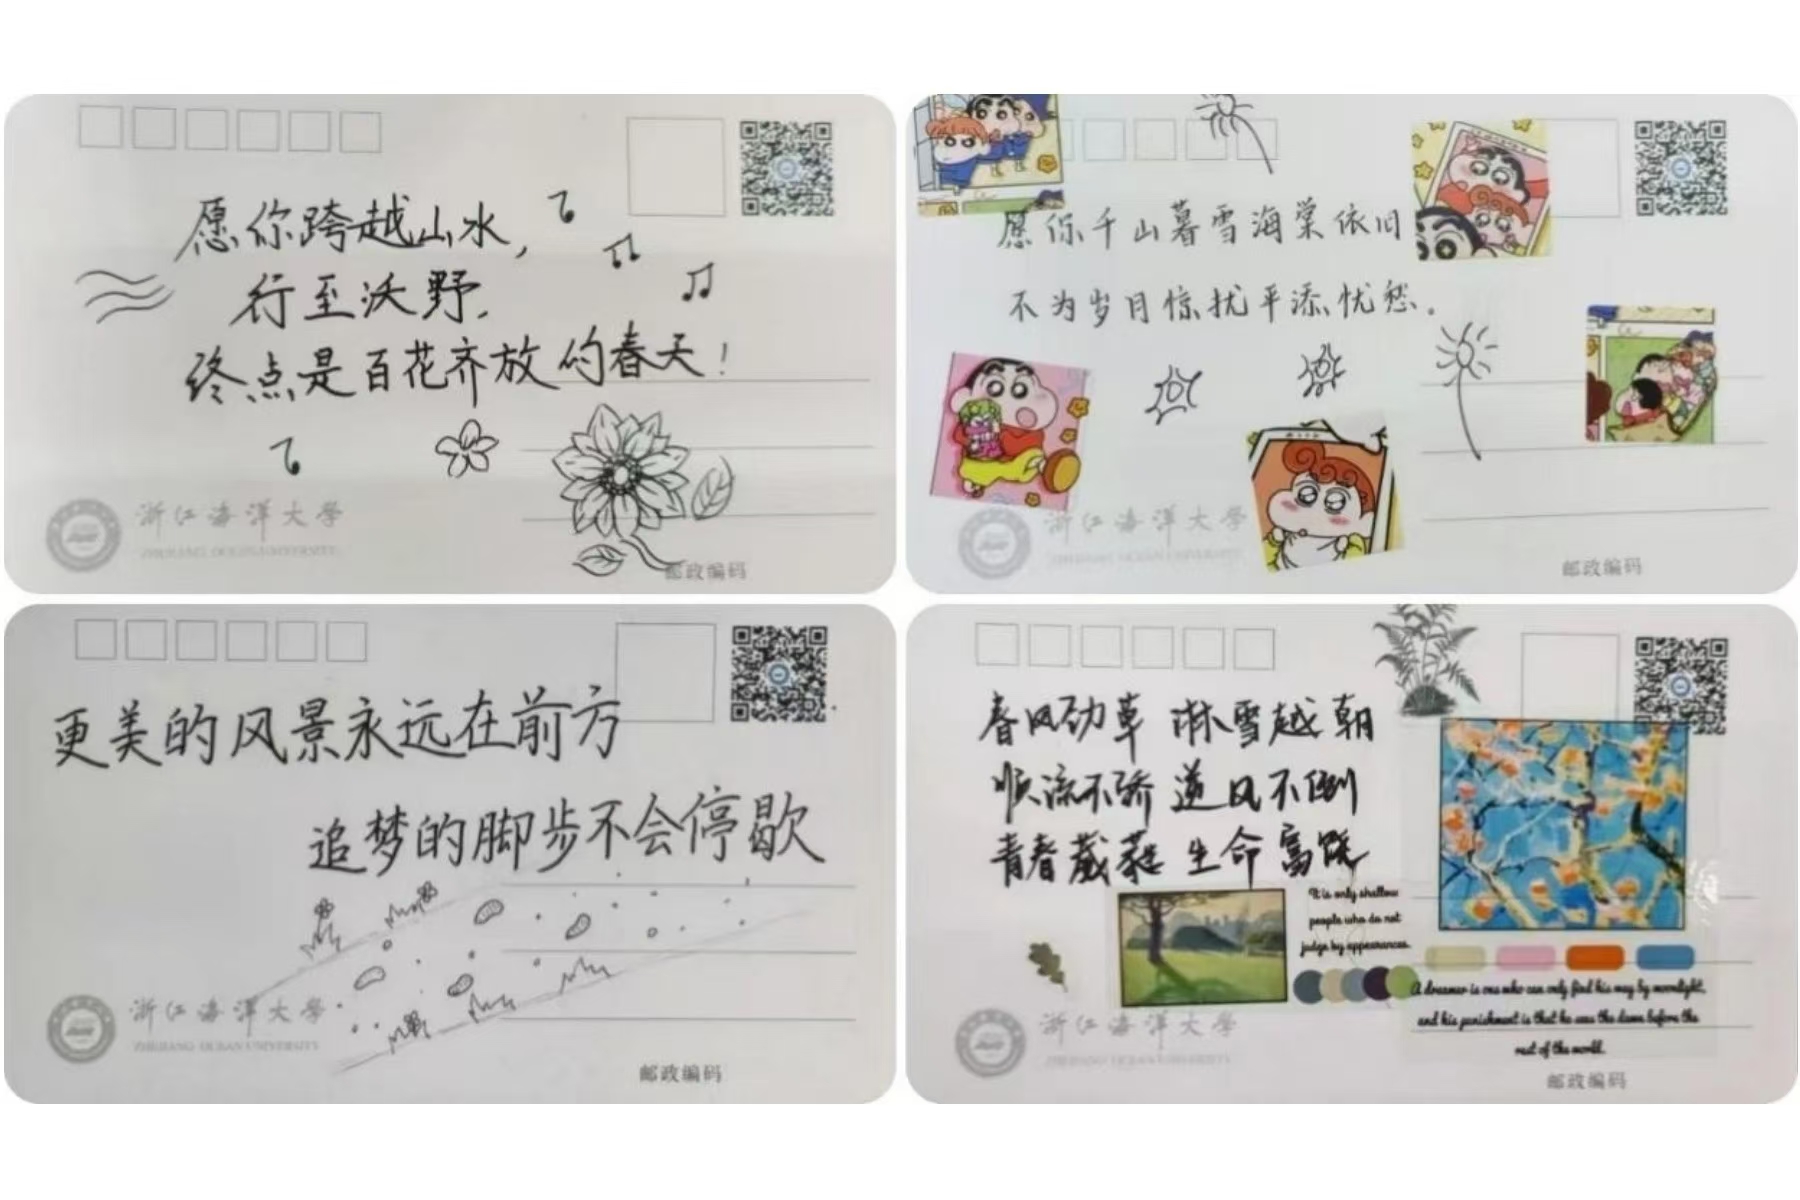 愿你跨越山水,
行至沃野.
终点是百花齐放的春天!
浙江海洋大学
ZHEJIANG OCEAN UNIVERSITY
邮政编码
愿你千山暮雪海棠依旧
不为岁月惊扰平添忧愁.
浙江海洋大学
ZHEJIANG OCEAN UNIVERSITY
邮政编码
更美的风景永远在前方
追梦的脚步不会停歇
浙江海洋大学
ZHEJIANG OCEAN UNIVERSITY
邮政编码
春风劲草 淋雪越朝
顺流不骄 逆风不倒
青春葳蕤 生命富饶
It is only shallow
people who do not
judge by appearances.
A dreamer is one who can only find his way by moonlight,
and his punishment is that he sees the dawn before the
rest of the world.
浙江海洋大学
ZHEJIANG OCEAN UNIVERSITY
邮政编码